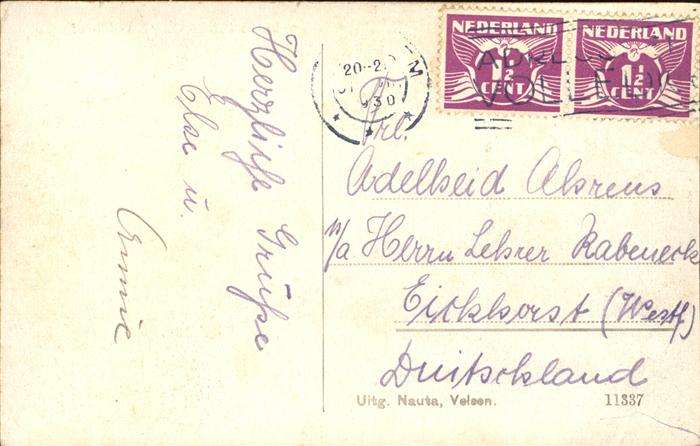 Herzliche Grüße
Else u.
Annie
NEDERLAND
1½
CENT
NEDERLAND
1½
CENT
20-2
M
930
ADRES
VOLLEDI
Frl.
Adelheid Ahrens
p/a Herrn Lehrer Rabeneck
Eickhorst (Westf.)
Duitschland
Uitg. Nauta, Velsen.
11337